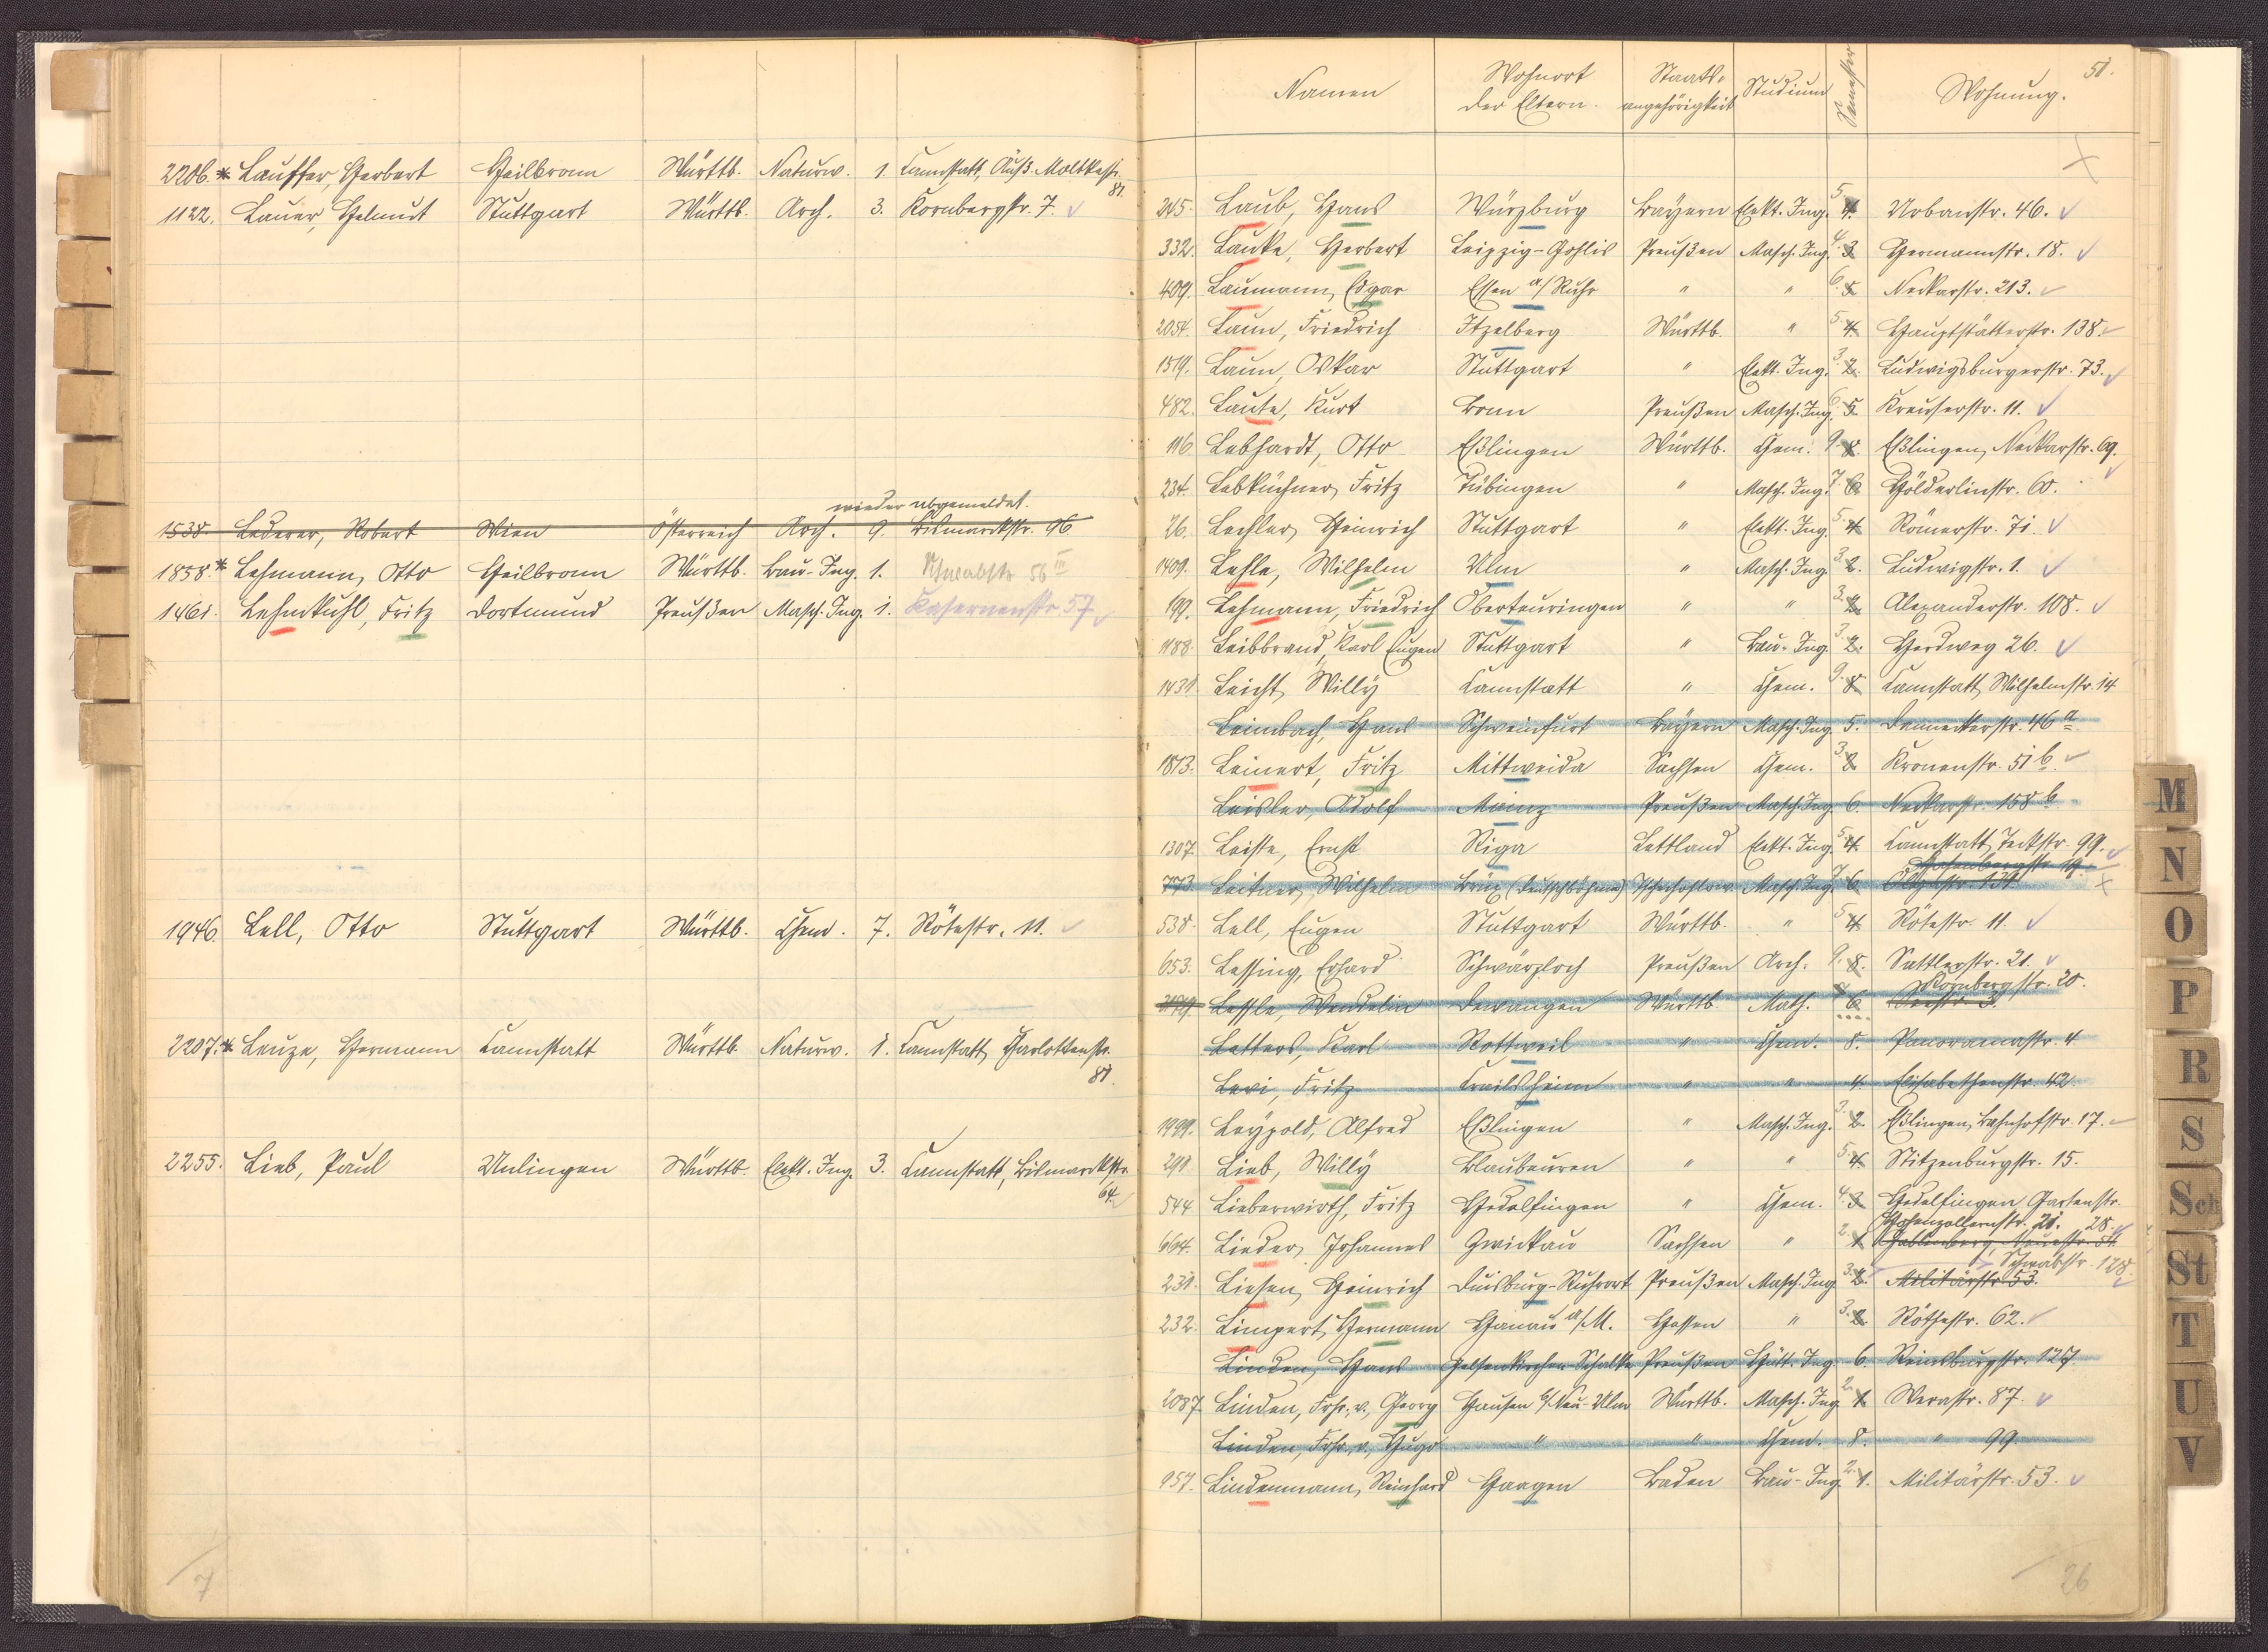 2206.* Lauffer, Herbert Heilbronn Württb. Naturw. 1. Cannstatt, Äuß. Moltkestr. 81.
1122. Lauer, Helmut Stuttgart Württb. Arch. 3. Kornbergstr. 7.
wieder abgemeldet.
1538. Lederer, Robert Wien Österreich Arch. 9. Bismarckstr. 96
1858.* Lehmann, Otto Heilbronn Württb. Bau-Ing. 1. Schwabstr 56 III
1461. Lehmkuhl, Fritz Dortmund Preußen Masch. Ing. 1. Kasernenstr 57
1946. Lell, Otto Stuttgart Württb. Chem. 7. Rötestr. 11.
2207.* Leuze, Hermann Cannstatt Württb. Naturw. 1. Cannstatt, Charlottenstr. 81.
2255. Lieb, Paul Unlingen Württb. Elekt. Ing. 3. Cannstatt, Bismarckstr. 64.
7
51.
Namen Wohnort der Eltern. Staats-angehörigkeit Studium Semester Wohnung.
245. Laub, Hans Würzburg Bayern Elekt. Ing. 5. 4. Urbanstr. 46.
332. Lauke, Herbert Leipzig-Gohlis Preußen Masch. Ing. 4. 3. Hermannstr. 18.
409. Laumann, Edgar Essen a/Ruhr " " 6. 5. Neckarstr. 213.
2054. Laun, Friedrich Itzelberg Württb. " 5. 4. Hauptstätterstr. 138.
1519. Laun, Oskar Stuttgart " Elekt. Ing. 3. 2. Ludwigsburgerstr. 73.
482. Laute, Kurt Bonn Preußen Masch. Ing. 6. 5. Kreuserstr. 11.
116. Lebhardt, Otto Eßlingen Württb. Chem. 9. 8. Eßlingen, Neckarstr. 69.
234. Lebküchner, Fritz Tübingen " Masch. Ing. 7. 6. Hölderlinstr. 60.
26. Lechler, Heinrich Stuttgart " Elekt. Ing. 5. 4. Römerstr. 71.
1409. Lehle, Wilhelm Ulm " Masch. Ing. 3. 2. Ludwigstr. 1.
199. Lehmann, Friedrich Oberteuringen " " 3. 2. Alexanderstr. 108.
1188. Leibbrand, Karl Eugen Stuttgart " Bau-Ing. 3. 2. Herdweg 26.
1431. Leicht, Willy Cannstatt " Chem. 9. 8. Cannstatt, Wilhelmstr. 14
Leimbach, Hans Schweinfurt Bayern Masch. Ing. 5. Danneckerstr. 46 a
1813. Leinert, Fritz Mittweida Sachsen Chem. 3. 2. Kronenstr. 51 b.
Leisler, Adolf Mainz Preußen Masch. Ing. 6. Neckarstr. 158 b.
1307. Leiste, Ernst Riga Lettland Elekt. Ing. 5. 4. Cannstatt, Teckstr. 99.
773. Leitner, Wilhelm Brüx (Deutschböhmen) Tschechoslow. Masch. Ing. 7. 6. Hasenbergstr. 19.
538. Lell, Eugen Stuttgart Württb. " 5. 4. Rötestr. 11.
653. Lessing, Erhard Schwärzloch Preußen Arch. 9. 8. Sattlerstr. 21.
Lessle, Wendelin Dewangen Württb. Math. 6. Kornbergstr. 20.
Letters, Karl Rottweil " Chem. 8. Panoramastr. 4.
Levi, Fritz Crailsheim " " 4. Elisabethenstr. 42.
1999. Leypold, Alfred Eßlingen " Masch. Ing. 3. 2. Eßlingen, Bahnhofstr. 17.
291. Lieb, Willy Blaubeuren " " 5. 4. Stitzenburgstr. 15.
544. Lieberwirth, Fritz Hedelfingen " Chem. 4. 3. Hedelfingen Gartenstr. 28.
664. Lieder, Johannes Zwickau Sachsen " 2. 1. Hohenzollernstr. 21. Gablenberg, Neuestr. 54
231. Liesen, Heinrich Duisburg-Ruhrort Preußen Masch. Ing. 3. 2. Schwabstr. 128. Militärstr. 53.
232. Limpert, Hermann Hanau a/M. Hessen " 3. 2. Röthestr. 62.
Linden, Hans Gelsenkirchen Schalke Preußen Hütt. Ing. 6. Reinsburgstr. 127.
2087. Linden, Frhr. v., Georg Hausen b/Neu-Ulm Württb. Masch. Ing. 2. 1. Werastr. 87.
Linden, Frhr. v., Hugo " " Chem. 8. " 99
957. Lindenmann, Reinhard Haagen Baden Bau-Ing. 2. 1. Militärstr. 53.
26
M
N
O
P
R
S
Sch
St
T
U
V